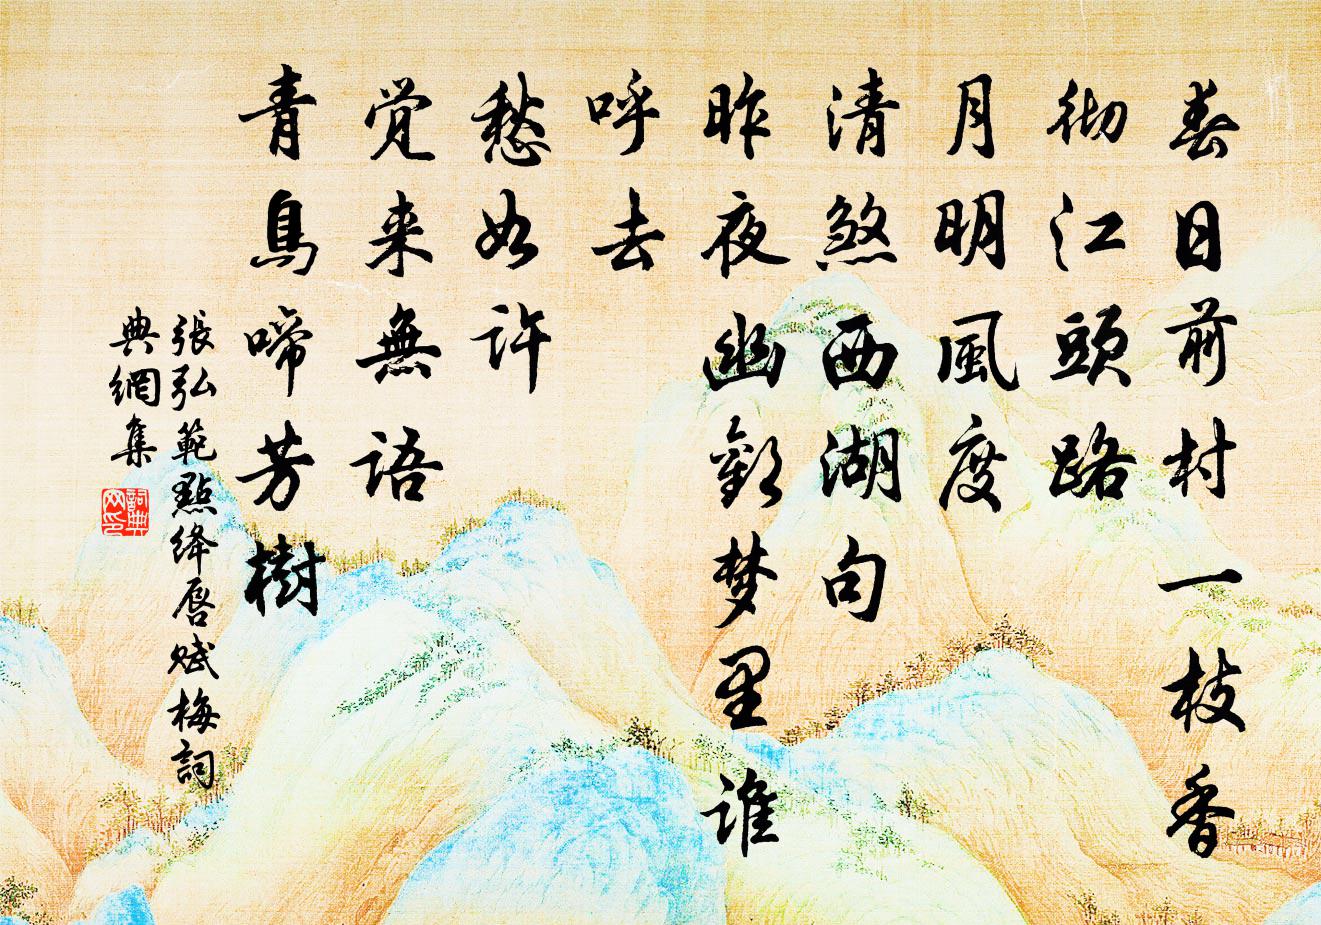 春日前村一枝香
彻江頭路
月明風度
清煞西湖句
昨夜幽歡梦里谁
呼去
愁如许
觉来無语
青鳥啼芳樹
張弘範點绛唇赋梅詞
典網集
詞典网印